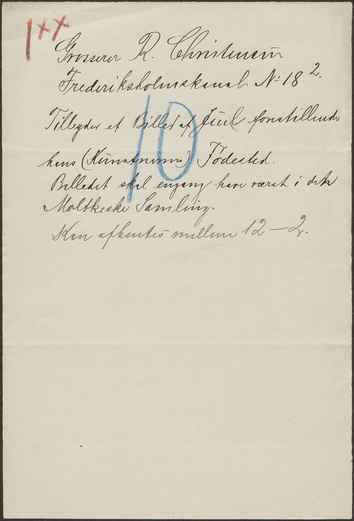 1××
Grosserer R. Christensen
Frederiksholmskanal No 18 2.
10
Tilbyder et Billed af Juel forestillende
hans (Kunstnerens) Fødested.
Billedet skal engang have været i den
Moltkeske Samling.
Kan afhentes mellem 12–2.